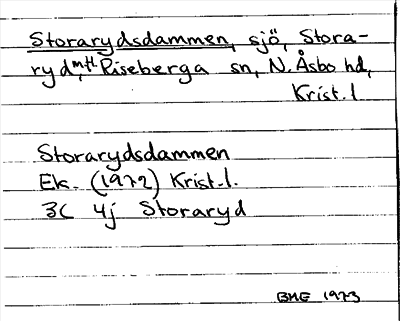 Storarydsdammen, sjö, Stora-
ryd, mtl. Riseberga sn, N. Åsbo hd,
Krist. l.
Storarydsdammen
Ek. (1972) Krist. l.
3C 4j Storaryd
BME 1973